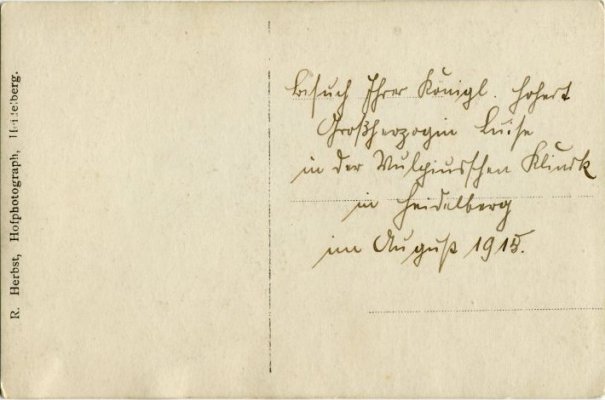 R. Herbst, Hofphotograph, Heidelberg.
Besuch Ihrer Königl. Hoheit
Großherzogin Luise
in der Vulpius'schen Klinik
in Heidelberg
im August 1915.